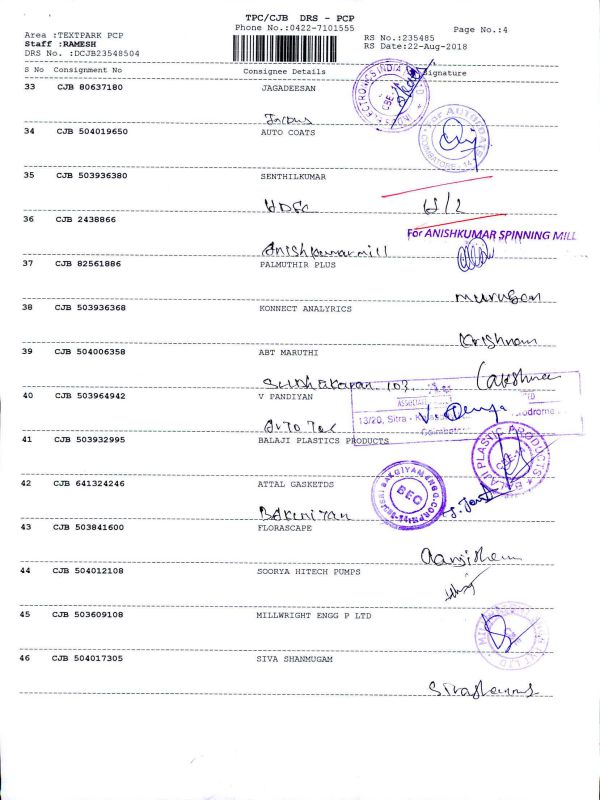 TPC/CJB DRS - PCP
Phone No.:0422-7101555
Page No.:4
Area :TEXTPARK PCP
Staff :RAMESH
DRS No. :DCJB23548504
RS No.:235485
RS Date:22-Aug-2018
S No Consignment No Consignee Details Signature
33 CJB 80637180 JAGADEESAN
34 CJB 504019650 AUTO COATS
35 CJB 503936380 SENTHILKUMAR
HDFC
36 CJB 2438866
For ANISHKUMAR SPINNING MILL
Anishkumar mill
37 CJB 82561886 PALMUTHIR PLUS
Murugan
38 CJB 503936368 KONNECT ANALYRICS
Krishnan
39 CJB 504006358 ABT MARUTHI
Sudhakaran 103
40 CJB 503964942 V PANDIYAN
ASSOCIATE
13/20, Sitra
Auto Tec
41 CJB 503932995 BALAJI PLASTICS PRODUCTS
BALAJI PLASTIC PRODUCTS
42 CJB 641324246 ATTAL GASKETDS
BEC
43 CJB 503841600 FLORASCAPE
44 CJB 504012108 SOORYA HITECH PUMPS
45 CJB 503609108 MILLWRIGHT ENGG P LTD
46 CJB 504017305 SIVA SHANMUGAM